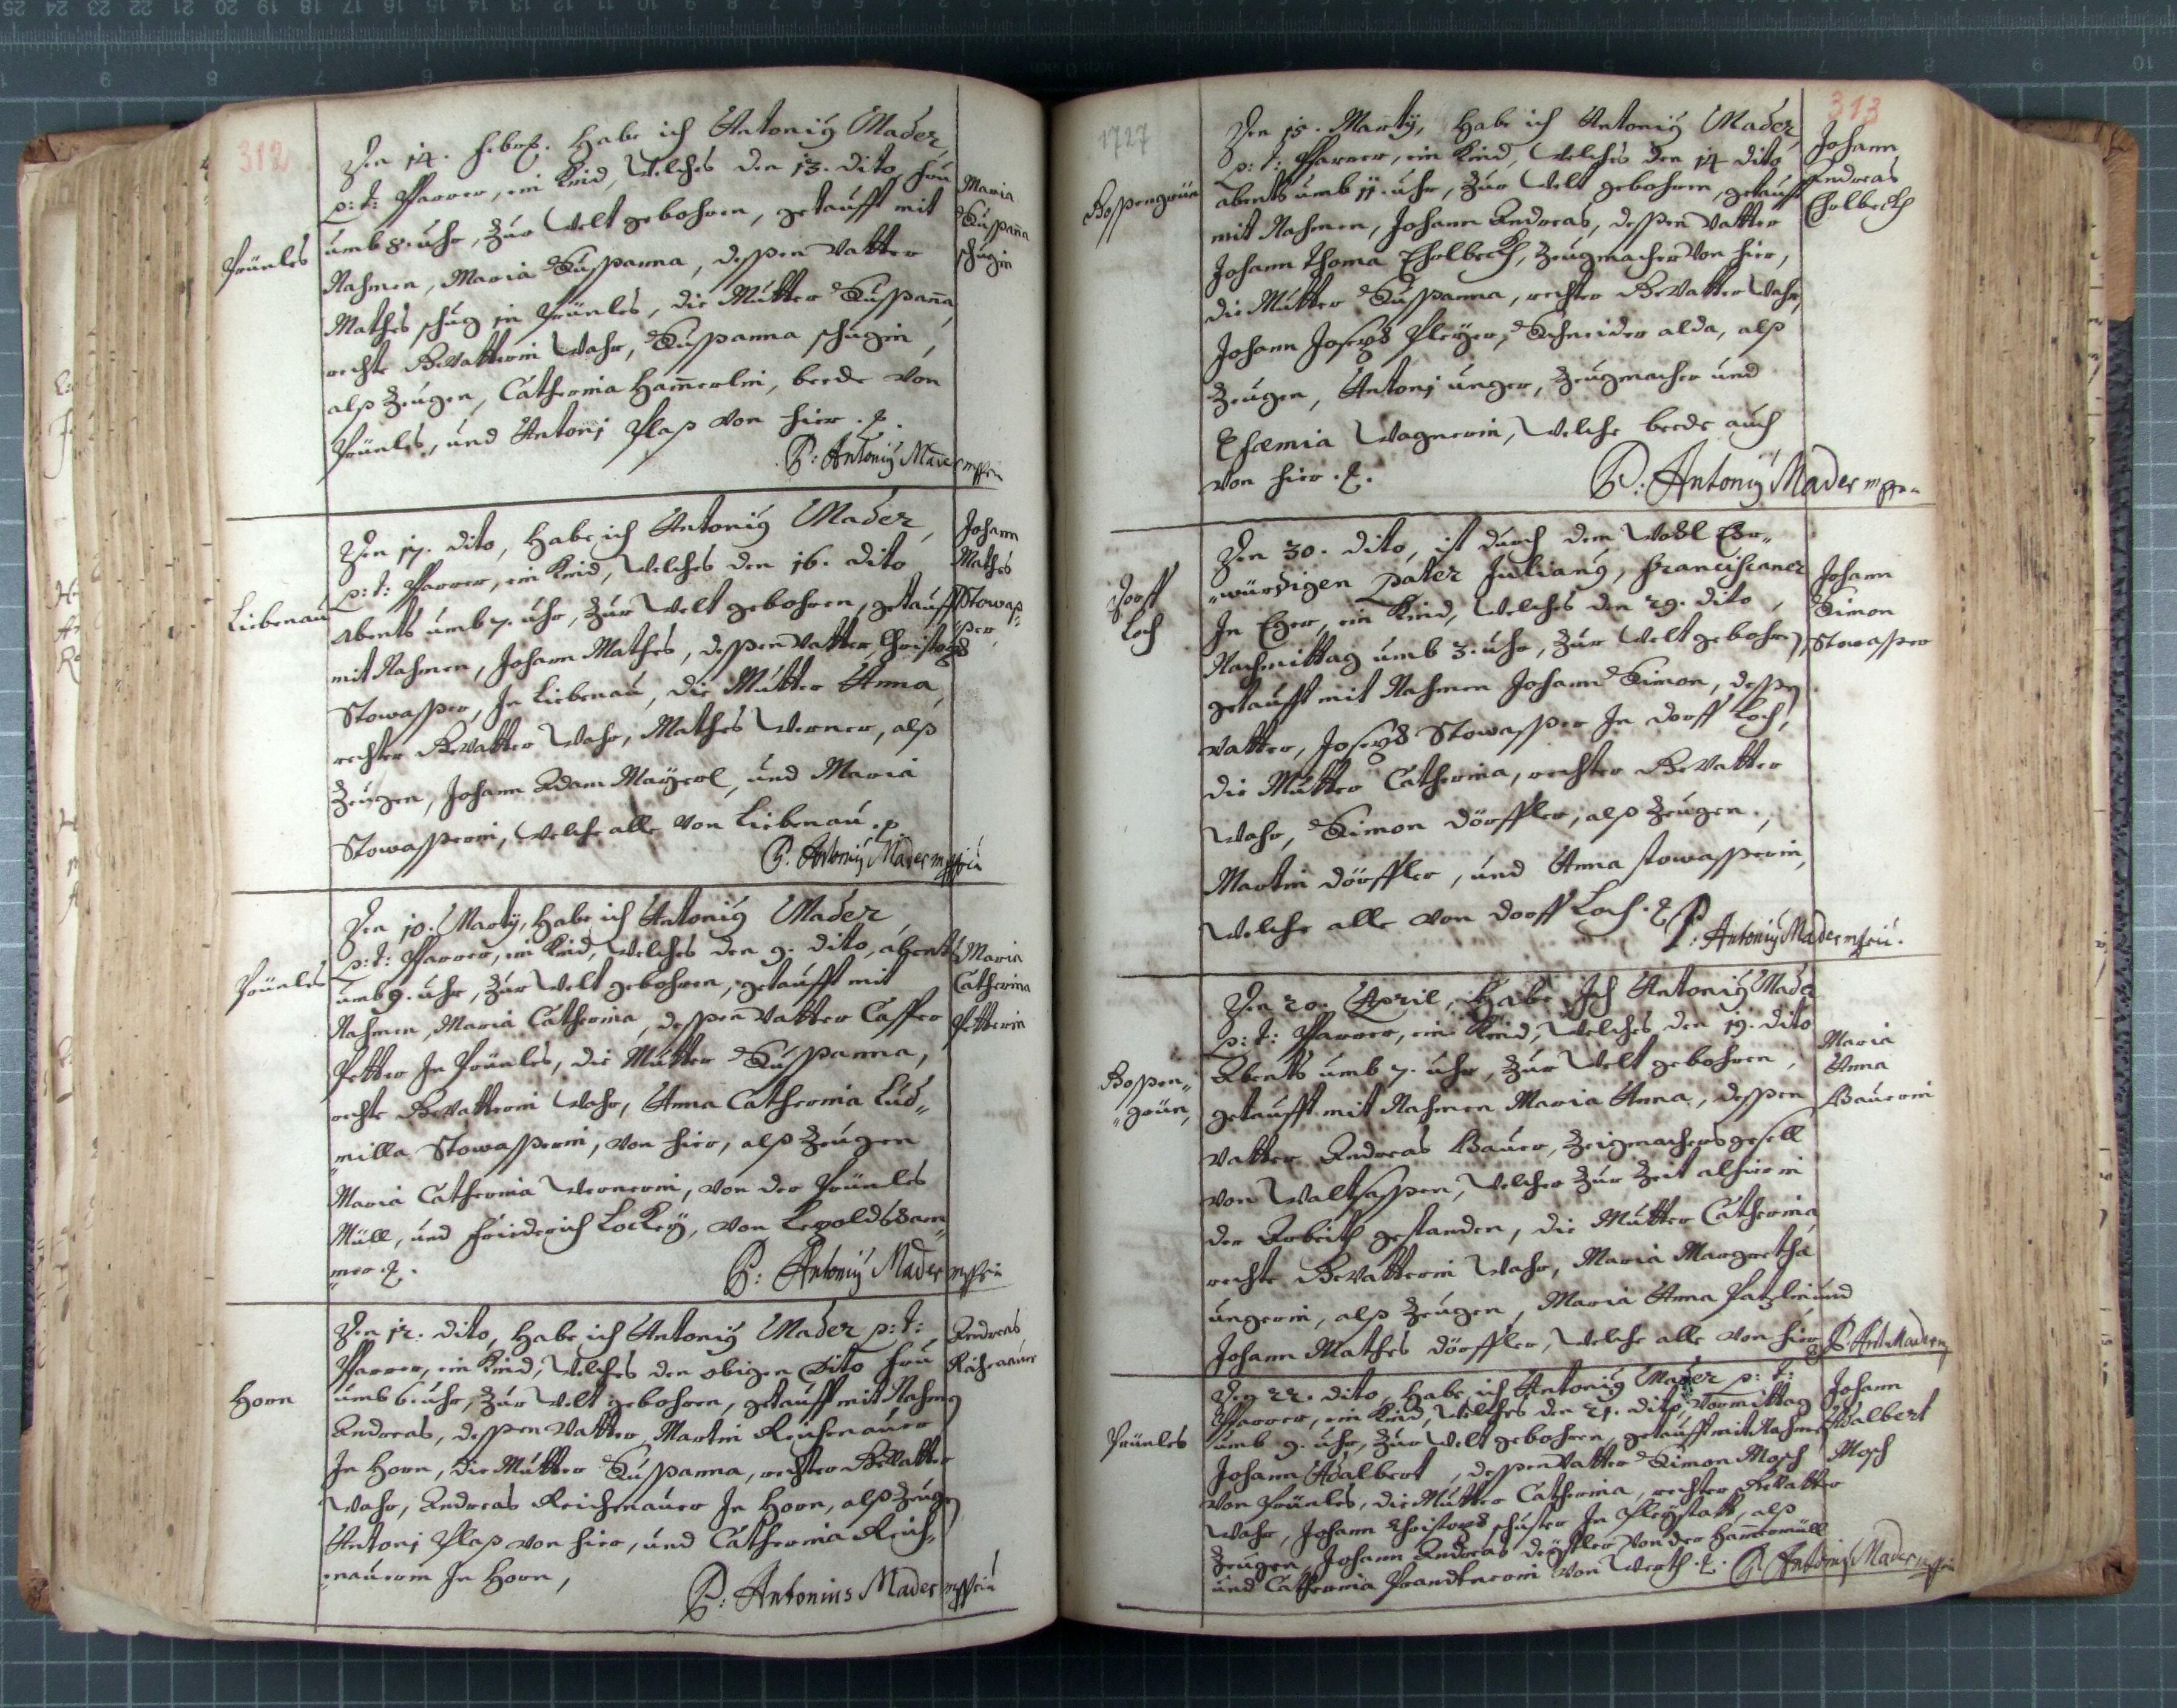 312
Den 14. Febr. Habe ich Antoniy Mader,
p: t: Pfarrer, ein Kind, Welches den 13. dito, fru
umb 8. uhr, Zur Welt gebohren, getaufft mit
Nahmen, Maria Susßanna, desßen Vatter
Mathes schug in Prünles, die Mutter Susßana,
rechte Bevatterin Wahr, Susßanna schugin,
alß Zeugen, Catherina Hamerlin, beede von
Prünles, und Antonj Plaß von hier.
P: Antoniy Mader mppria
Prünles
Maria
Susßana
schugin
Den 17. dito, Habe ich Antoniy Mader,
p: t: Pfarrer, ein Kind, Welches den 16. dito
Abents umb 7. uhr, Zur Welt gebohren, getaufft
mit Nahmen, Johann Mathes, desßen Vatter, Christoph
Stowasßer, In Liebenau, die Mutter Anna,
rechter Bevatter Wahr, Mathes Werner, alß
Zeugen, Johann Adam Mayerl, und Maria
Stowasßerin, Welche alle von Liebenau.
P. Antoniy Mader mppria
Liebenau
Johann
Mathes
Stowas-
ßer,
Den 10. Marty, Habe ich Antoniy Mader
p: t: Pfarrer, ein Kind, Welches den 9. dito, abents
umb 9. uhr, Zur Welt gebohren, getaufft mit
Nahmen, Maria Catherina, desßen Vatter Casper
Petter In Prünles, die Mutter Susßanna,
rechte Bevatterin Wahr, Anna Catherina Lud-
milla Stowasßerin, von hier, alß Zeugen
Maria Catherina Wernerin, von der Prünles
Müll, und Friederich Lockey, von Lepoldsham-
mer.
P: Antoniy Mader mppria
Prünles
Maria
Catherina
Petterin
Den 12. dito, Habe ich Antoniy Mader p: t:
Pfarrer, ein Kind, Welches den obigen Dito fru
umb 6. uhr, Zur Welt gebohren, getaufft mit Nahmen
Andreas, desßen Vatter, Martin Reichenauer
In Horn, die Mutter Susßanna, rechter Bevatter
Wahr, Andreas Reichenauer In Horn, alß Zeugen
Antonj Plaß von hier, und Catherina Reich-
nauerin In Horn,
P: Antonius Mader mppria
Horn
Andreas
Reichenauer
313
1727
Den 15. Marty, Habe ich Antoniy Mader
p: t: Pfarrer, ein Kind, Welches den 14 dito
abents umb 11. uhr, Zur Welt gebohren, getaufft
mit Nahmen, Johann Andreas, desßen Vatter
Johann Thoma Eholbech, Zeugmacher von hier,
die Mutter Susßanna, rechter Bevatter Wahr,
Johann Joseph Pleyer, Schneider alda, alß
Zeugen, Antonj unger, Zeugmacher und
Efæmia Wagnerin, Welche beede auch
von hier.
P: Antoniy Mader mppria
Bosßengrün
Johann
Andreas
Eholbech
Den 30. dito, ist durch dem Wohl Ehr-
würdigen Pater Juliany, Franciscaner
In Eger, ein Kind, Welches den 29. dito,
Nachmittag umb 3. uhr, Zur Welt gebohren,
getaufft mit Nahmen Johann Simon, desßen
Vatter, Joseph Stowasßer In Dorff Loch,
die Mutter Catherina, rechter Bevatter
Wahr, Simon Dörffler, alß Zeugen,
Martin Dörffler, und Anna stowasßerin,
Welche alle von Dorff Loch.
P: Antoniy Mader mppria.
Dorff
Loch
Johann
Simon
Stowasßer
Den 20. April, Habe Ich Antoniy Mader
p: t: Pfarrer, ein Kind, Welches den 19. dito
Abents umb 7. uhr, Zur Welt gebohren,
getaufft mit Nahmen Maria Anna, desßen
Vatter Andreas Bauer, Zeigmachersgesell
von Waltsasßen, Welcher Zur Zeit alhier in
der Arbeith gestanden, die Mutter Catherina
rechte Bevatterin Wahr, Maria Margretha
ungerin, alß Zeugen, Maria Anna Patzlin und
Johann Mathes Dörffler, Welche alle von hier
P. Ant: Mader
Bosßen-
grün,
Maria
Anna
Bauerin
Den 22. dito, Habe ich Antoniy Mader p: t:
Pfarrer, ein Kind, Welches den 21. dito, Vormittag
umb 9. uhr, Zur Welt gebohren, getaufft mit Nahmen
Johann Adalbert, desßen Vatter Simon Mosch
von Prünles, die Mutter Catherina, rechter Bevatter
Wahr, Johann Christoph schuster In Pleystatt, alß
Zeugen, Johann Andreas Deistler von der Hamermüll
und Catherina Prandtnerin von Werth.
P. Antoniy Mader mppria
Prünles
Johann
Adalbert
Mosch